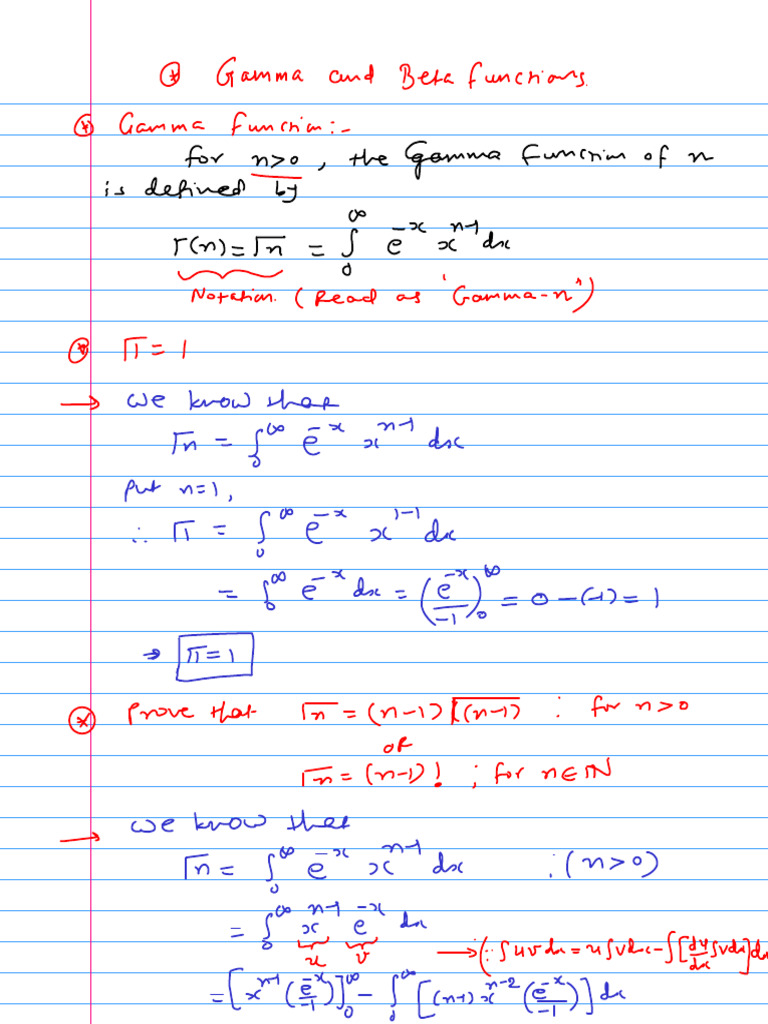 ⊛ Gamma and Beta functions.
⊛ Gamma Function:-
for n>0, the Gamma Function of n
is defined by
Γ(n) = Γn = ∫₀^∞ e^{-x} x^{n-1} dx
Notation. (Read as 'Gamma-n')
⊛ Γ1 = 1
→ We know that
Γn = ∫₀^∞ e^{-x} x^{n-1} dx
Put n=1,
∴ Γ1 = ∫₀^∞ e^{-x} x^{1-1} dx
= ∫₀^∞ e^{-x} dx = (e^{-x}/-1)₀^∞ = 0-(-1) = 1
→ Γ1 = 1
⊛ Prove that Γn = (n-1) Γ(n-1) ; for n>0
OR
Γn = (n-1)! ; for n∈ℕ
→ We know that
Γn = ∫₀^∞ e^{-x} x^{n-1} dx ; (n>0)
= ∫₀^∞ x^{n-1} e^{-x} dx
u v → (∵ ∫uvdx = u∫vdx - ∫[du/dx ∫vdx]dx
= [x^{n-1} (e^{-x}/-1)]₀^∞ - ∫₀^∞ [(n-1) x^{n-2} (e^{-x}/-1)] dx